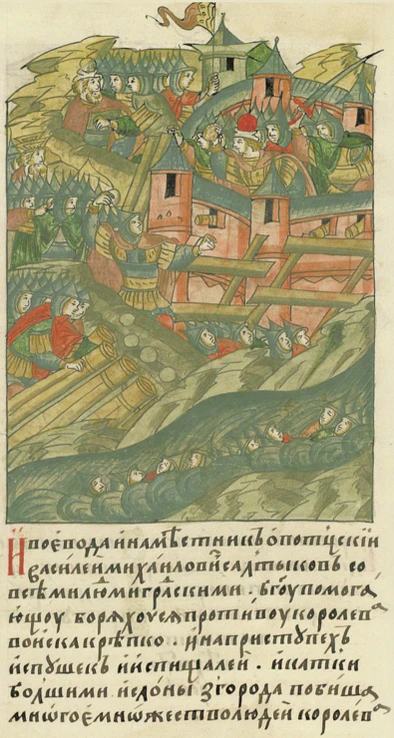 И воевода инамѣстникъ опотцскїи
василеи михаиловиⷱ салтыковъ со
всѣми людми градскими . бг҃оу помогаⷽ
ющоу борѧхоусѧ противоу королеваⷽ
воиска крѣпко . и на пристꙋпехъ
ис пушекъ и ис пищалеи . и катки
болшими и слоны з города побишаⷽ
многое множество людеи королева